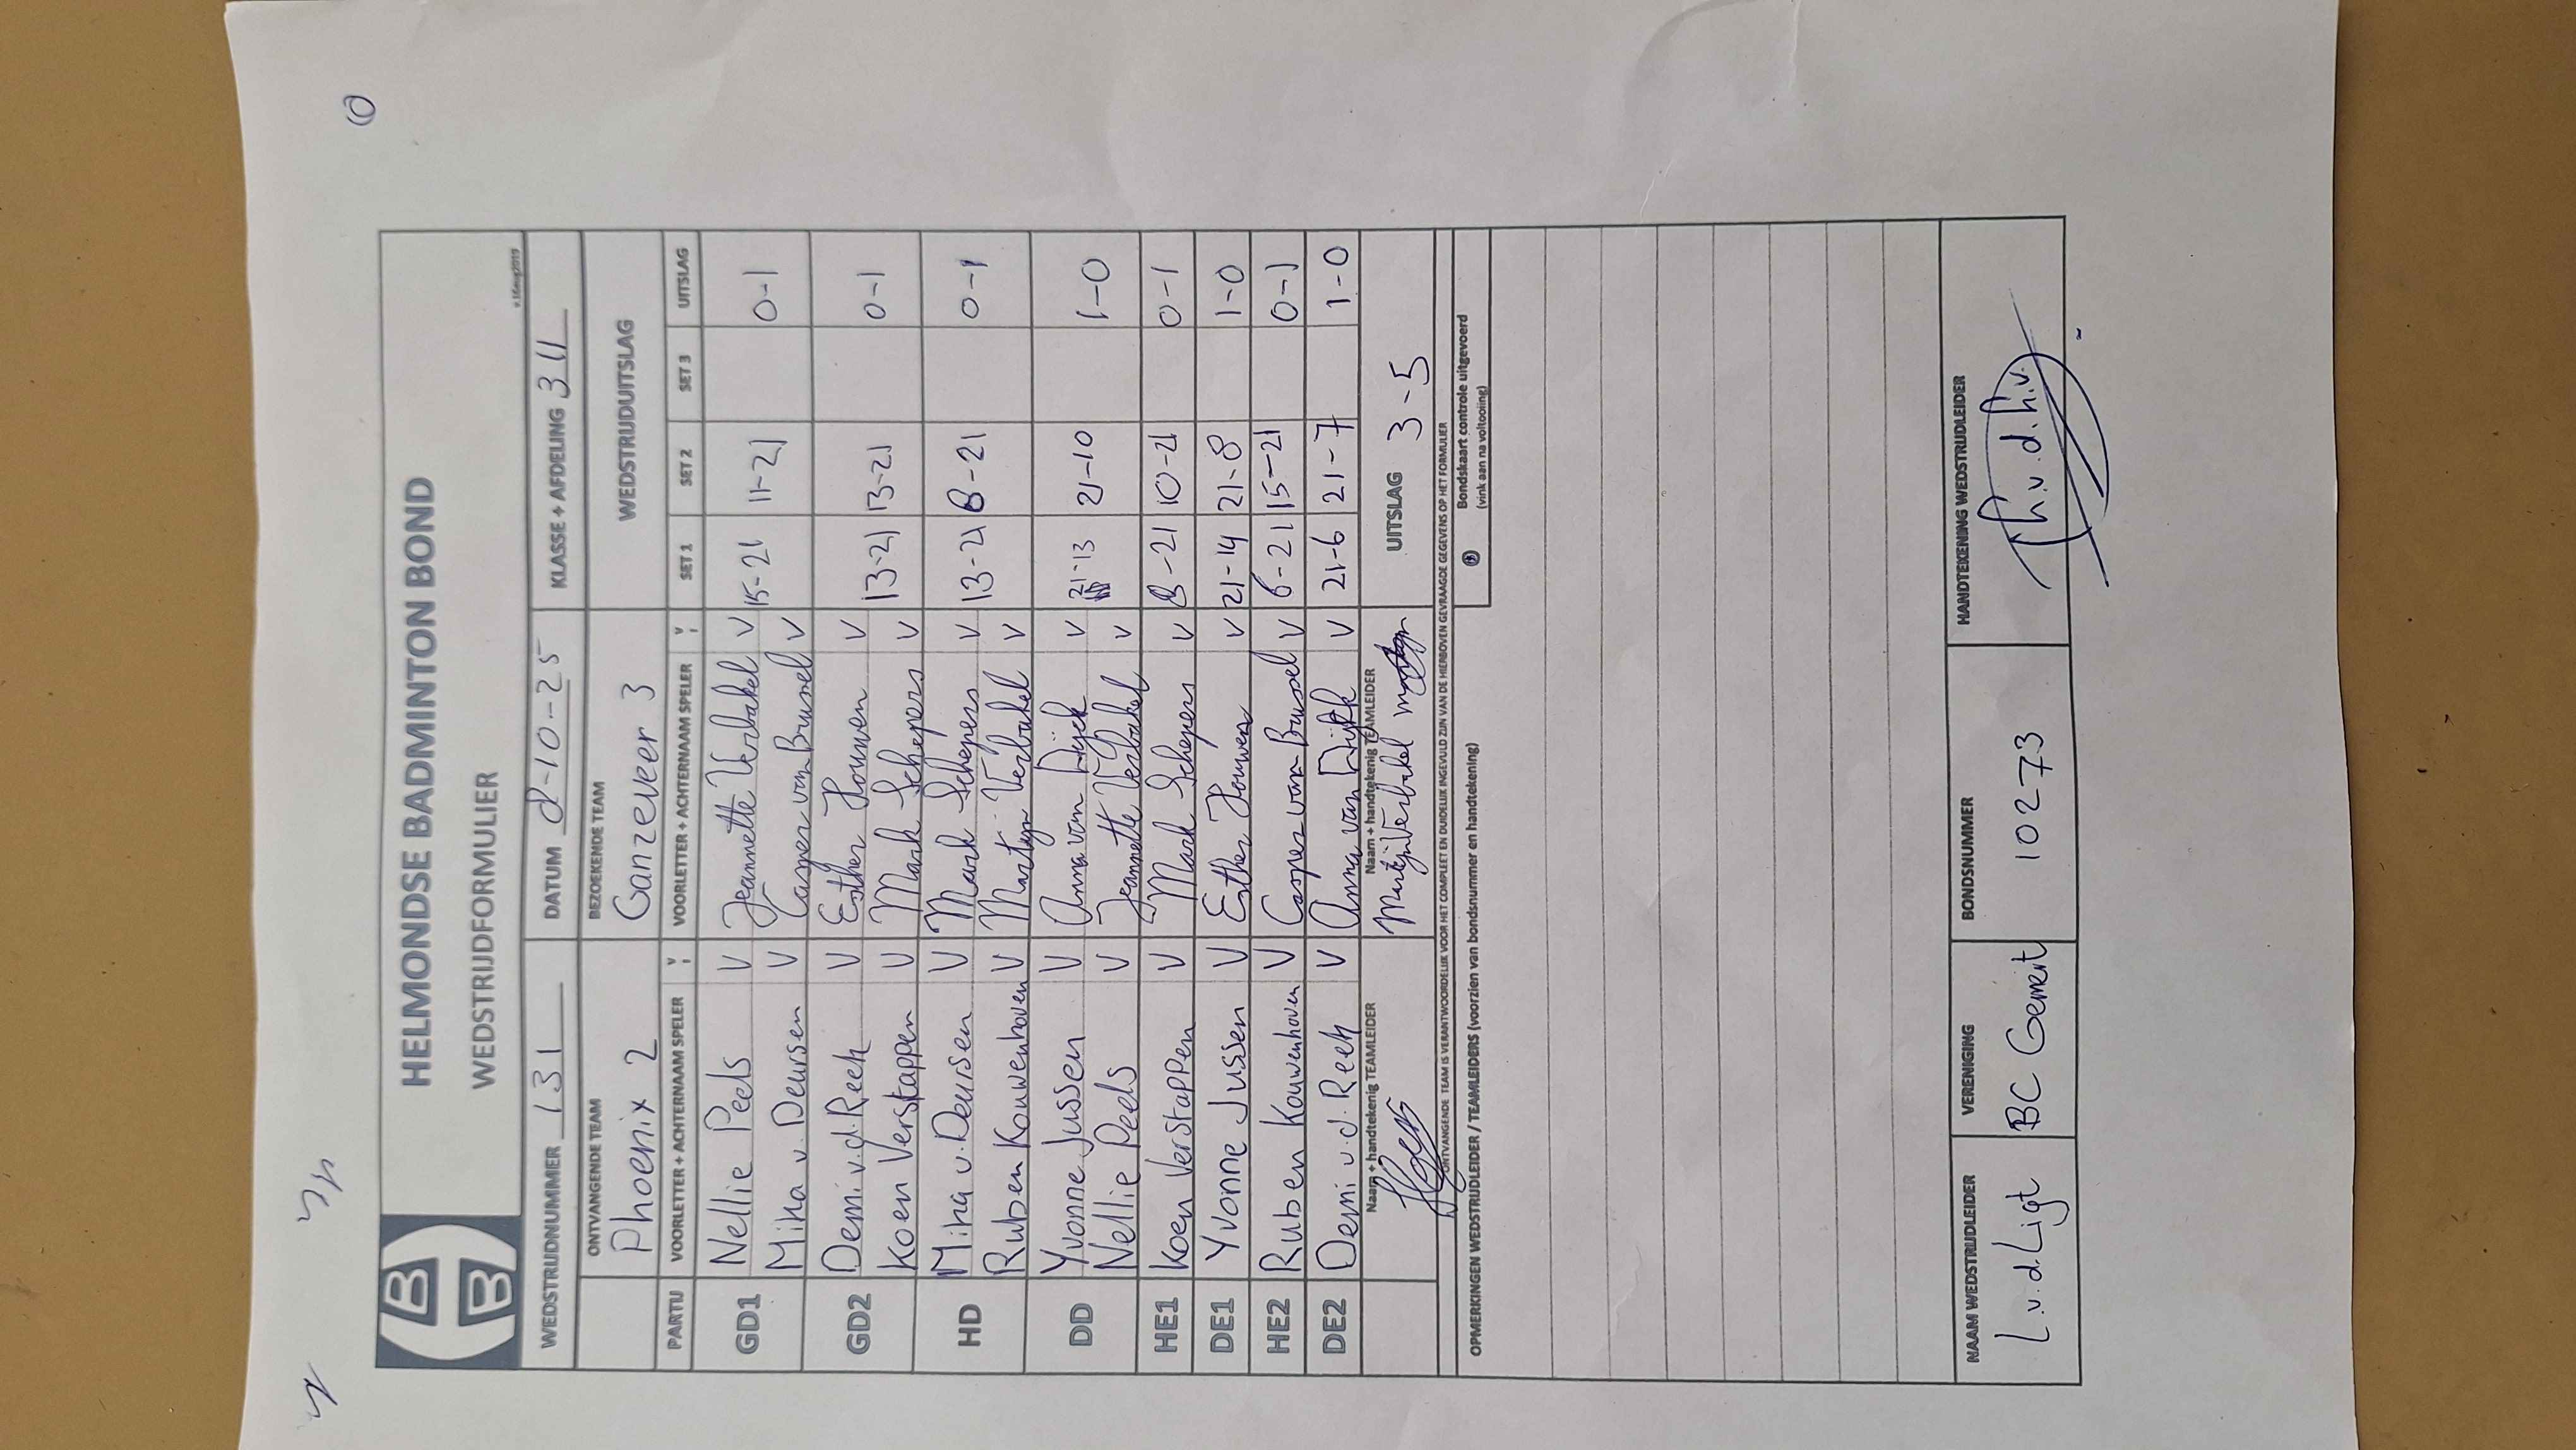 HELMONDSE BADMINTON BOND
WEDSTRIJDFORMULIER
WEDSTRIJDNUMMER 131 DATUM 8-10-25 KLASSE + AFDELING 311
ONTVANGENDE TEAM BEZOEKENDE TEAM WEDSTRIJDUITSLAG
Phoenix 2 Ganzeveer 3
PARTIJ VOORLETTER + ACHTERNAAM SPELER VOORLETTER + ACHTERNAAM SPELER SET 1 SET 2 SET 3 UITSLAG
GD1 Nellie Peels V Jeannette Verbakel V 15-21 11-21 0-1
Mika v. Deursen V Casper van Brussel V
GD2 Demi v.d. Reek V Esther Houwen V 13-21 13-21 0-1
Koen Verstappen V Mark Schepers V
HD Mika v. Deursen V Mark Schepers V 13-21 8-21 0-1
Ruben Kouwenhoven V Martijn Verbakel V
DD Yvonne Jussen V Anna van Dijck V 21-13 21-10 1-0
Nellie Peels V Jeannette Verbakel V
HE1 Koen Verstappen V Mark Schepers V 8-21 10-21 0-1
DE1 Yvonne Jussen V Esther Houwen V 21-14 21-8 1-0
HE2 Ruben Kouwenhoven V Casper van Brussel V 6-21 15-21 0-1
DE2 Demi v.d. Reek V Anna van V 21-6 21-7 1-0
Naam + handtekenig TEAMLEIDER Naam + handtekenig TEAMLEIDER UITSLAG 3-5
Martijn Verbakel
ONTVANGENDE TEAM IS VERANTWOORDELIJK VOOR HET COMPLEET EN DUIDELIJK INGEVULD ZIJN VAN DE HIERBOVEN GEVRAAGDE GEGEVENS OP HET FORMULIER
OPMERKINGEN WEDSTRIJDLEIDER / TEAMLEIDERS (voorzien van bondsnummer en handtekening) Bondskaart controle uitgevoerd
(vink aan na voltooiing)
NAAM WEDSTRIJDLEIDER VERENIGING BONDSNUMMER HANDTEKENING WEDSTRIJDLEIDER
L.v.d. Ligt BC Gemert 10273